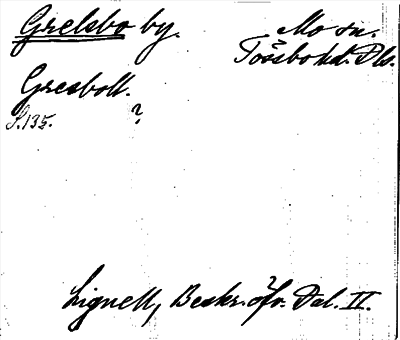 Grelsbo by.
Mo sn.
Tössbo hd. Dls.
Gresboll.
S. 135. ?
Lignell, Beskr. öfv. Dal. II.